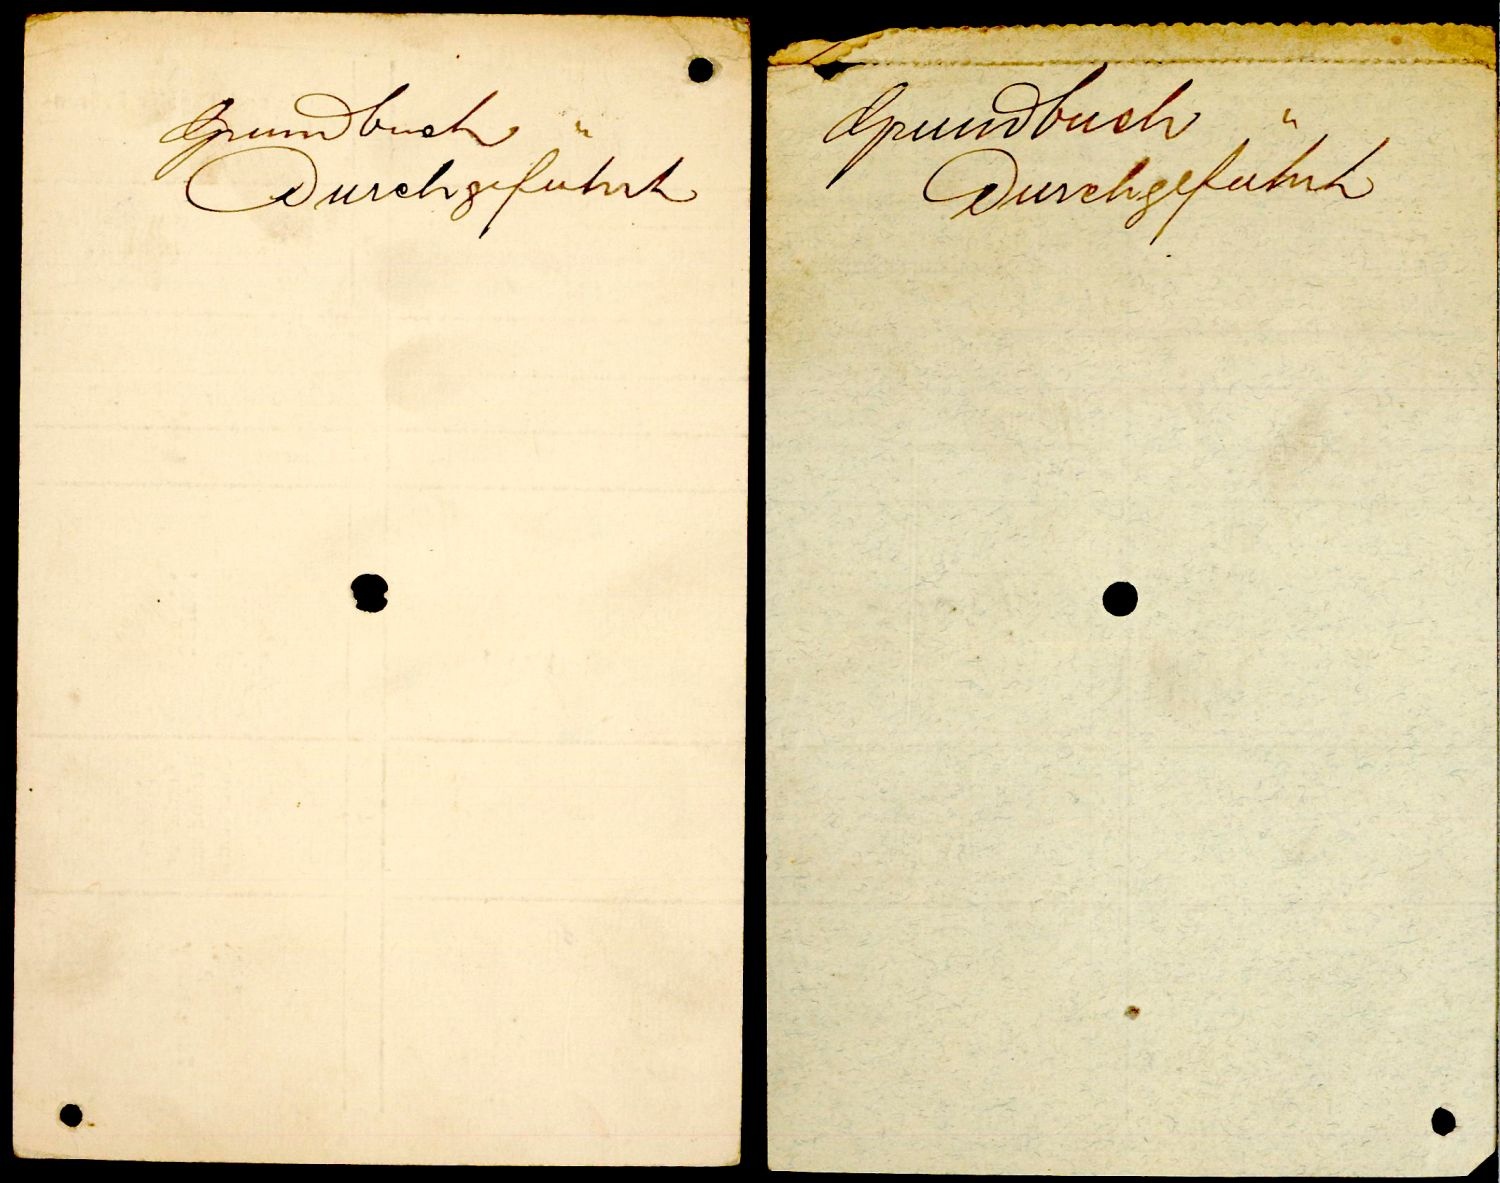 Grundbuch
Durchgeführt
Grundbuch
Durchgeführt